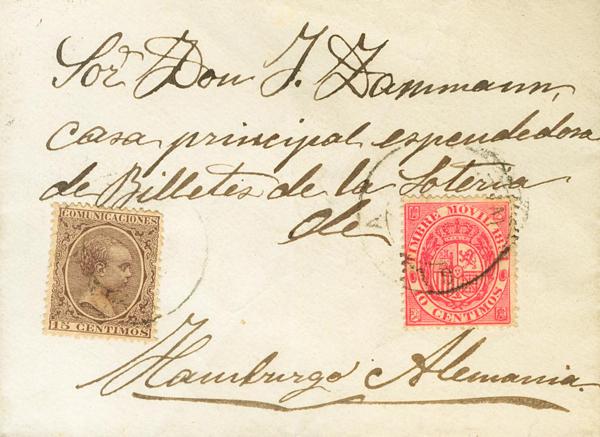 Sor Don J. Dammann,
casa principal espendedora
de Billetes de la Loteria
de
COMUNICACIONES
15 CENTIMOS
TIMBRE MOVIL
10 CENTIMOS
Hamburgo Alemania.